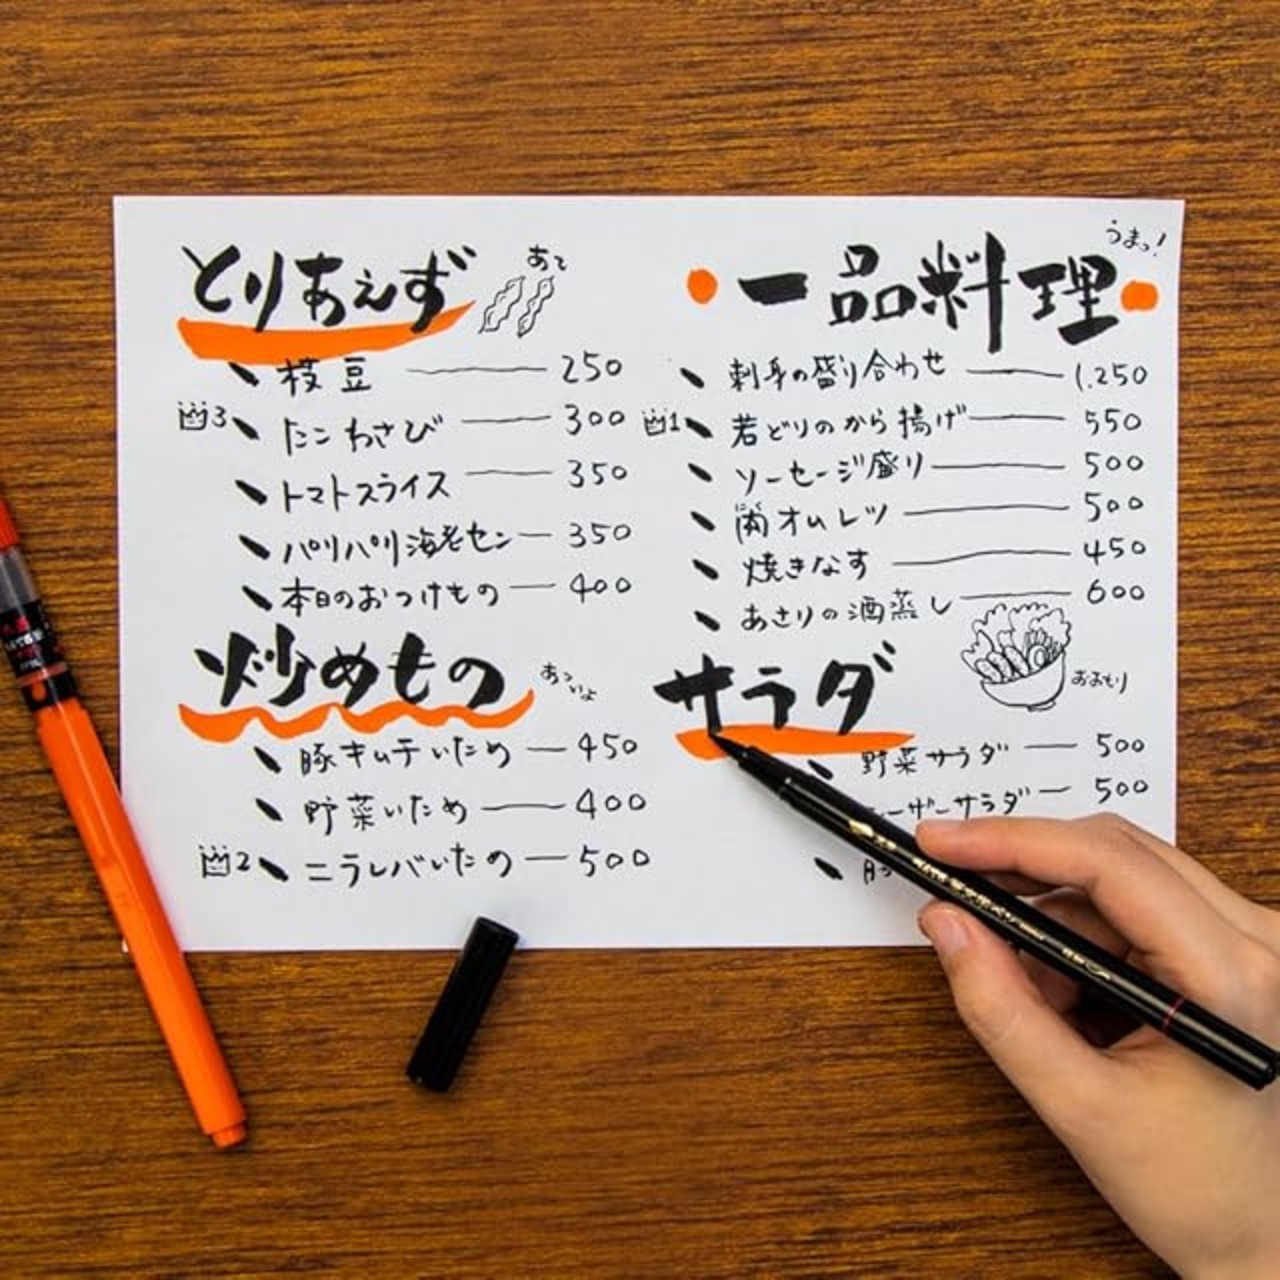 とりあえず
あて
枝豆 250
3 たこわさび 300
トマトスライス 350
パリパリ海老セン 350
本日のおつけもの 400
炒めもの
あっついよ
豚キムチいため 450
野菜いため 400
2 ニラレバいため 500
一品料理
うまっ!
刺身の盛り合わせ 1.250
1 若どりのから揚げ 550
ソーセージ盛り 500
にく
肉オムレツ 500
焼きなす 450
あさりの酒蒸し 600
サラダ
おおもり
野菜サラダ 500
ーザーサラダ 500